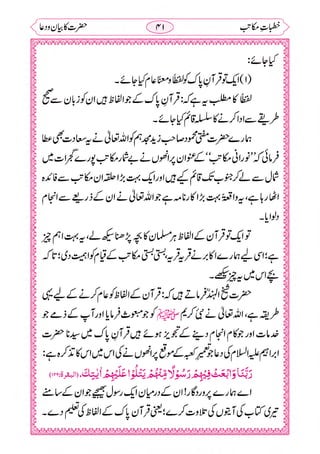 خطباتِ مکاتب
۴۱
حضرت کا بیان ودعا
کیا جائے:
(۱) ایک تو قرآنِ پاک کو لفظاً ومعنًا عام کیا جائے۔
لفظاً کا مطلب یہ ہے کہ: قرآن پاک کے جو الفاظ ہیں ان کو زبان سے صحیح
طریقے سے ادا کرنے کا سلسلہ قائم کیا جائے۔
ہمارے حضرت مفتی محمود صاحب زید مجدہم کو اللہ تعالیٰ نے یہ سعادت بھی عطا
فرمائی کہ ’’نورانی مکاتب‘‘ کے عنوان پر انھوں نے بے شمار مکاتب پورے گجرات میں
شمال سے لے کر جنوب تک قائم کیے ہیں اور ایک بہت بڑا حلقہ ان مکاتب سے فائدہ
اٹھا رہا ہے، یہ واقعۃً بہت بڑا کارنامہ ہے جو اللہ تعالیٰ نے ان کے ذریعے سے انجام
دلوایا۔
تو ایک تو قرآن کے الفاظ ہر مسلمان کا بچہ پڑھنا سیکھ لے، یہ بہت اہم چیز
ہے؛ اسی لیے ہمارے اکابر نے قریہ قریہ بستی بستی مکاتب کے قیام کو اہمیت دی؛ تاکہ
بچے اس میں یہ چیز سیکھے۔
حضرت شیخ الہندؒ فرماتے ہیں کہ: قرآن کے الفاظ کو عام کرنے کے لیے یہی
طریقہ ہے، اللہ تعالیٰ نے نبیِ کریم ﷺ کو جو مبعوث فرمایا اور آپ کے ذمے جو
خدمات اور جو کام انجام دینے کے تجویز ہوئے ہیں قرآنِ پاک میں سیدنا حضرت
ابراہیم علیہ السلام کی دعا جو تعمیرِ کعبہ کے موقع پر انھوں نے کی اس میں اس کا تذکرہ ہے:
رَبَّنَا وَابْعَثْ فِيْهِمْ رَسُوْلًا مِّنْهُمْ يَتْلُوْا عَلَيْهِمْ اٰيٰتِكَ. (البقرة:۱۲۹)
اے ہمارے پروردگار! ان کے درمیان ایک رسول بھیجیے جو ان کے سامنے
تیری کتاب کی آیتوں کی تلاوت کرے؛ یعنی قرآن پاک کے الفاظ کی تعلیم دے۔